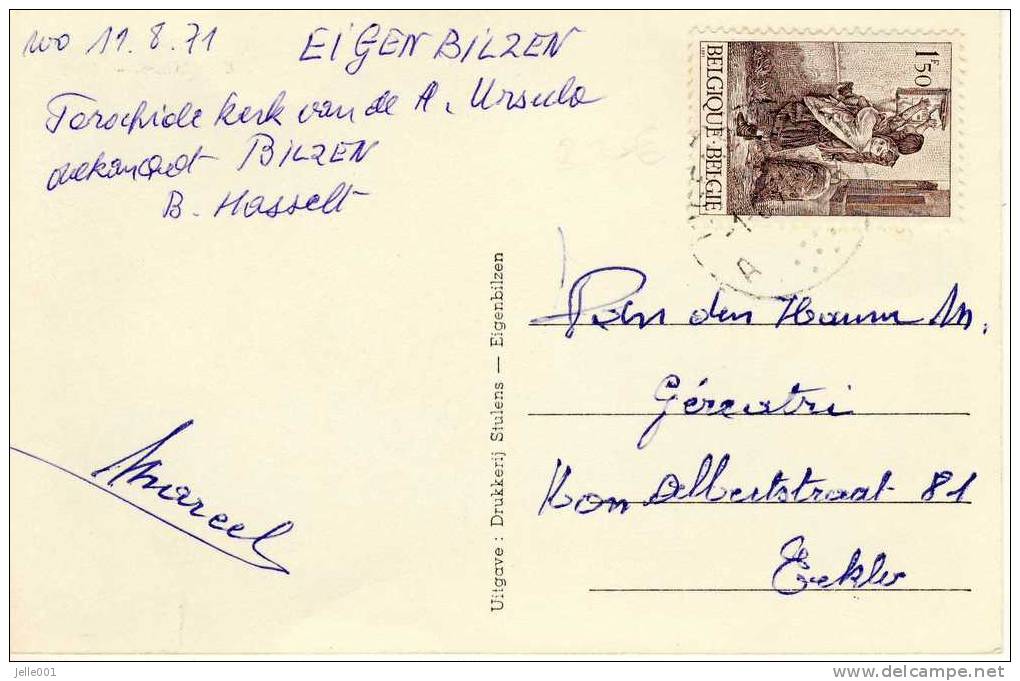 woo 11.8.71 EIGENBILZEN
Parochiale kerk van de H. Ursula
dekanaat BILZEN
B. Hasselt
Marcel
Uitgave : Drukkerij Stulens — Eigenbilzen
BELGIQUE · BELGIE
1F50
Van den Haum M.
Gércatri
Kon Albertstraat 81
Eeklo
jelle001
delcampe.net